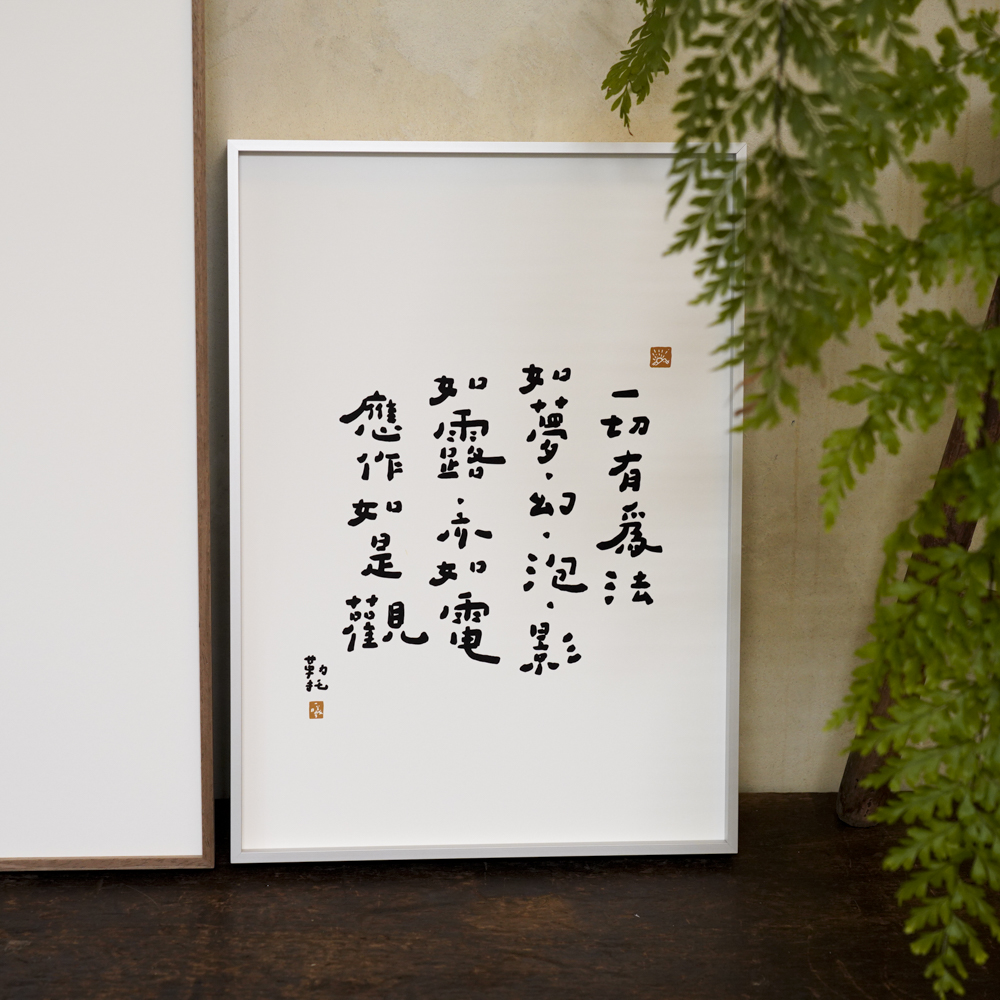 一切有為法
如夢·幻·泡·影
如露·亦如電
應作如是觀
勤耘